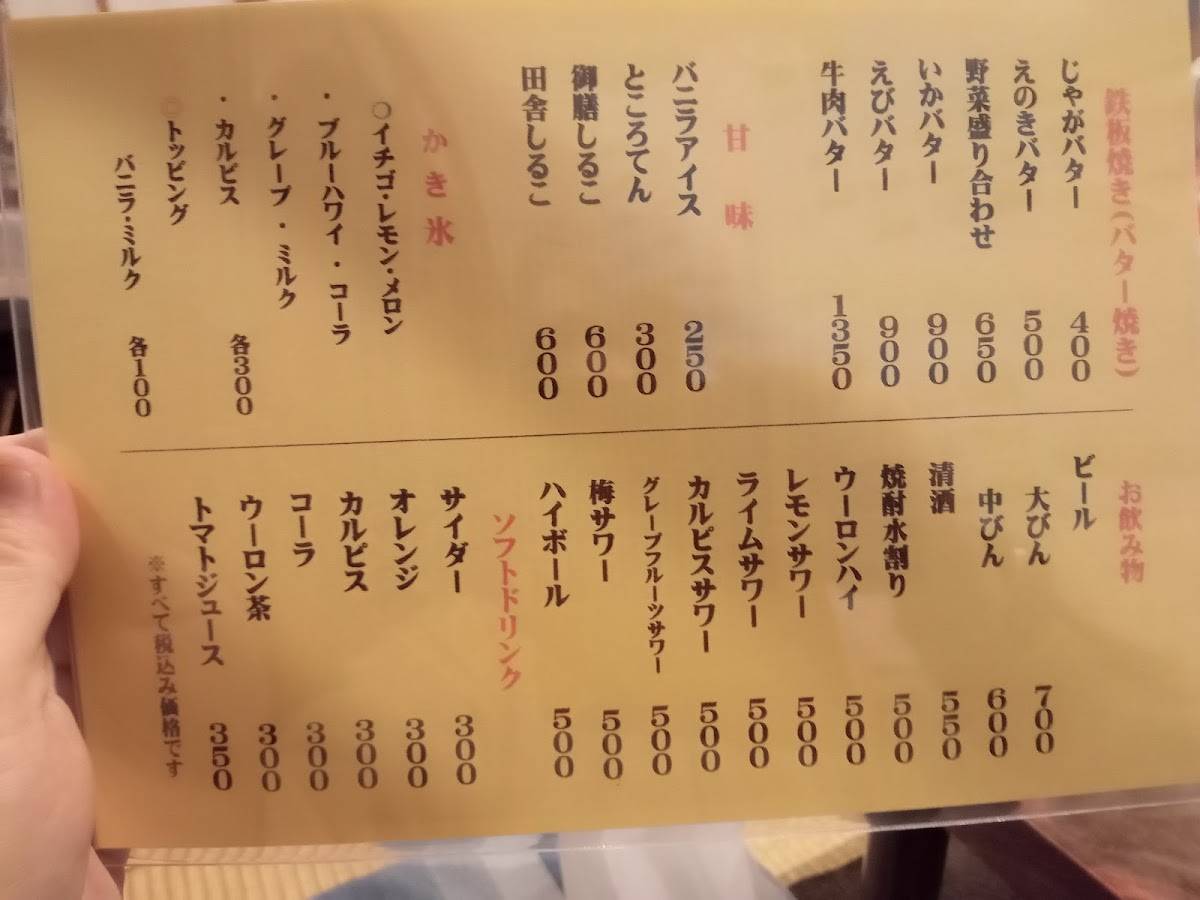 鉄板焼き(バター焼き)
じゃがバター 400
えのきバター 500
野菜盛り合わせ 650
いかバター 900
えびバター 900
牛肉バター 1350
甘味
バニラアイス 250
ところてん 300
御膳しるこ 600
田舎しるこ 600
かき氷
○イチゴ・レモン・メロン
・ブルーハワイ・コーラ
・グレープ・ミルク
・カルピス 各300
○トッピング
バニラ・ミルク 各100
お飲み物
ビール
大びん 700
中びん 600
清酒 550
焼酎水割り 500
ウーロンハイ 500
レモンサワー 500
ライムサワー 500
カルピスサワー 500
グレープフルーツサワー 500
梅サワー 500
ハイボール 500
ソフトドリンク
サイダー 300
オレンジ 300
カルピス 300
コーラ 300
ウーロン茶 300
トマトジュース 350
※すべて税込み価格です